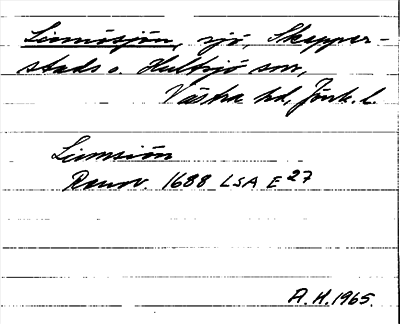 Linnösjön, sjö, Skepper-
stads o. Hultsjö snr,
Västra hd, Jönk. l.
Linnsiön
Rannv. 1688 LSA E 27
A. H. 1965.